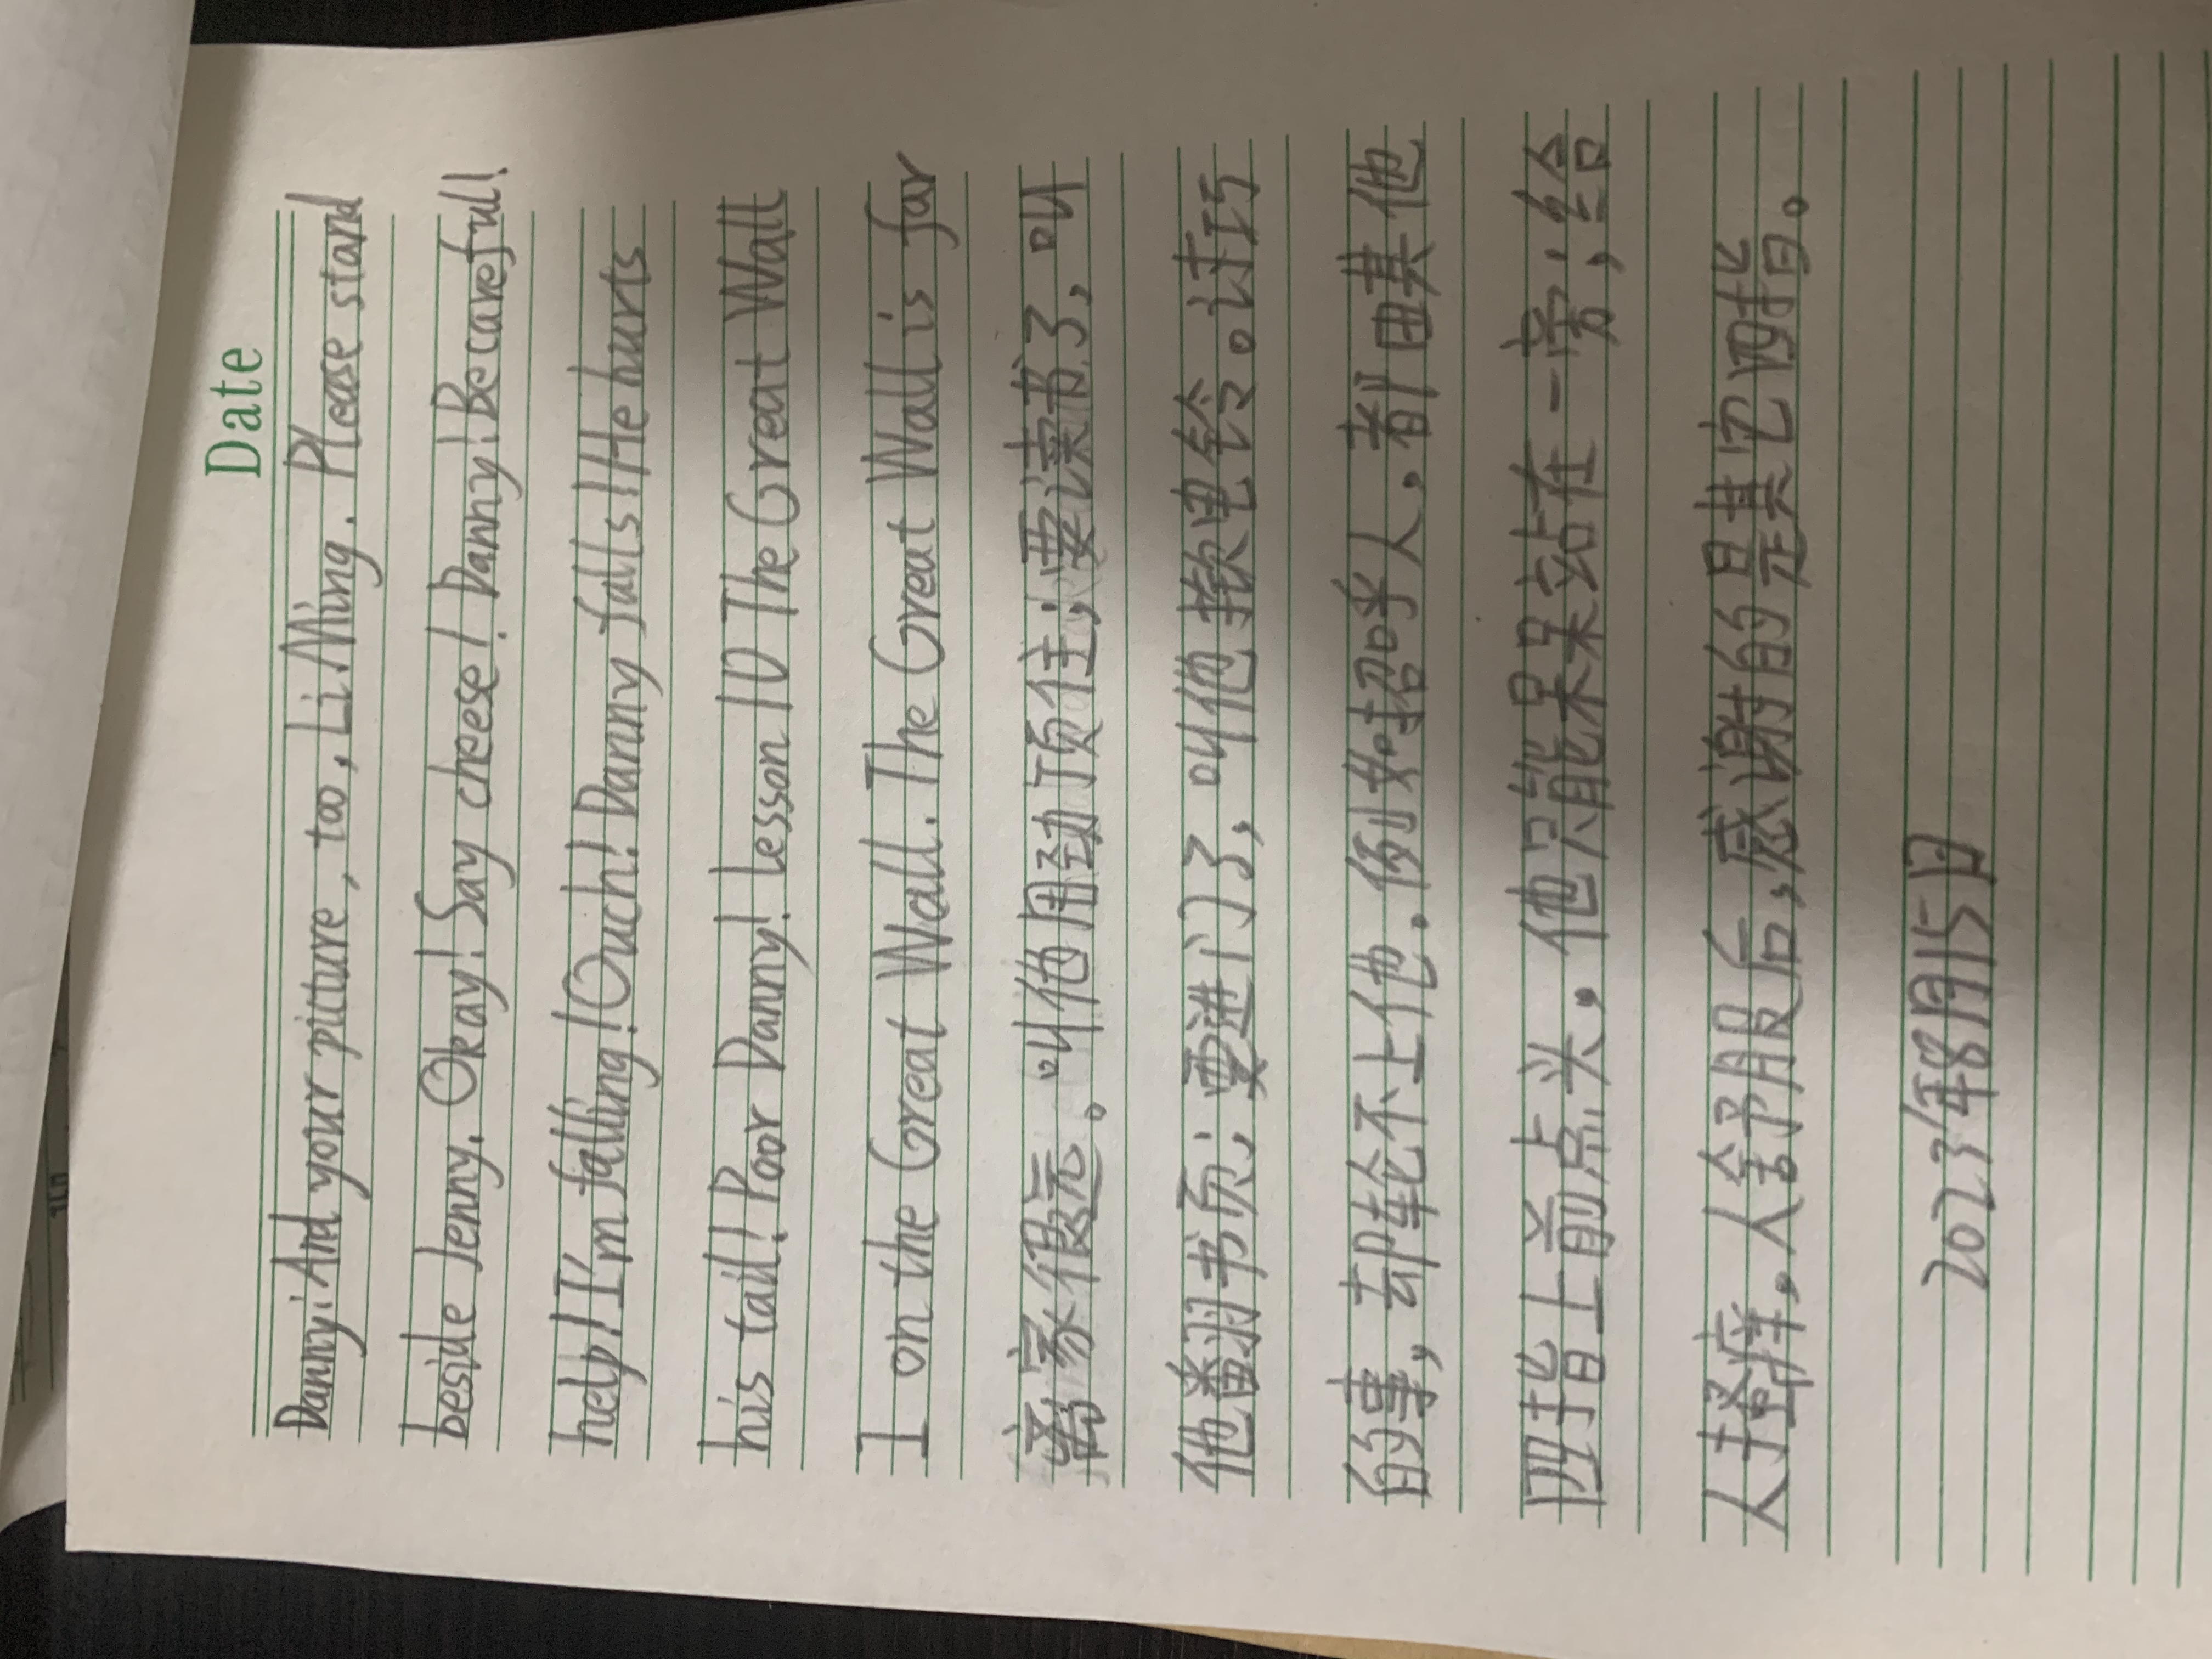 Date
Danny: And your picture, too, Li Ming. Please stand
beside Jenny. Okay! Say cheese! Danny! Be careful!
help! I'm falling! Ouch! Danny falls! He hurts
his tail! Poor Danny! Lesson 10 The Great Wall
I on the Great Wall. The Great Wall is far
离家很远。叫他用劲顶住；要读书了，叫
他翻书页；要进门了，叫他揿电铃。讨巧
的事，却轮不上他。例如招呼人，都由其他
四指上前点头，他只能呆呆站在一旁；给
人搔痒，人舒服后，感谢的是其它四指。
2023年8月15日